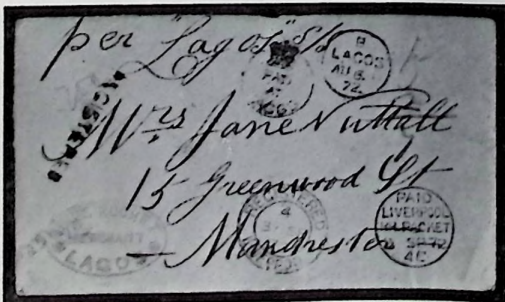 per "Lagos" S/S
B
LAGOS
AU 6
72
PAID
AT
REGISTERED
Mrs Jane Nuttall
15 Greenwood St
Manchester
REGISTERED
4
PAID
LIVERPOOL
PACKET
SP 72
LAGOS